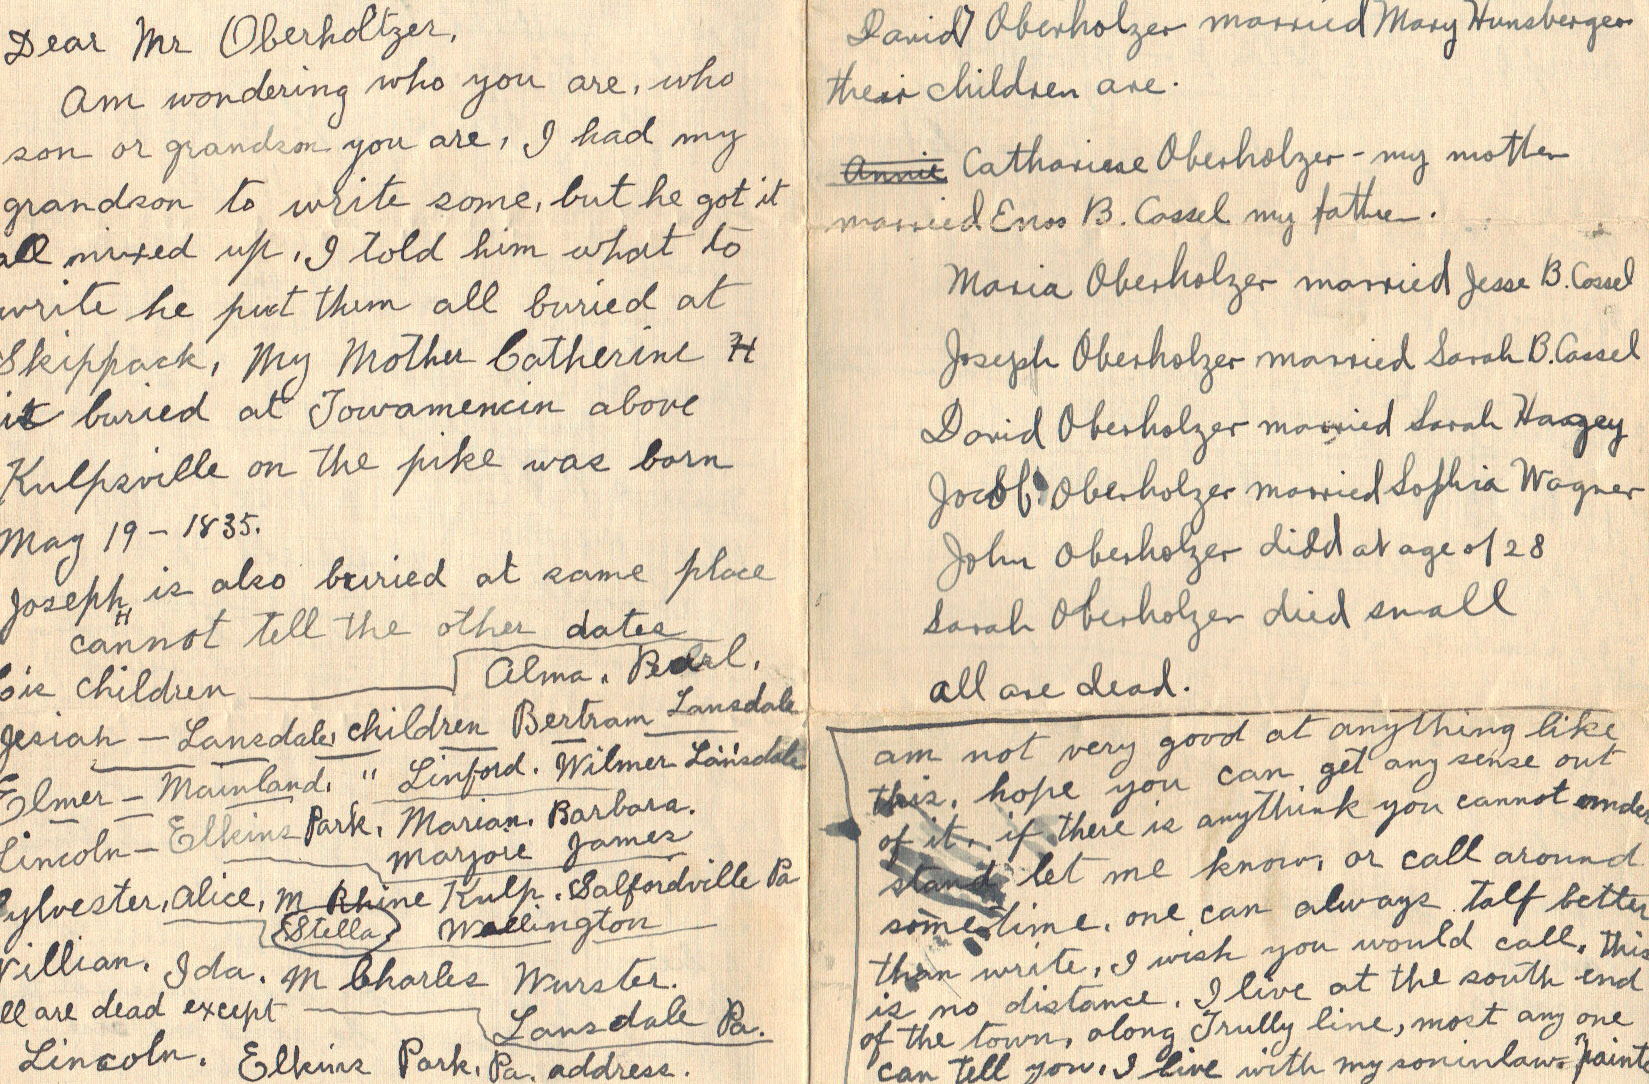 Dear Mr Oberholtzer,
Am wondering who you are, who
son or grandson you are, I had my
grandson to write some, but he got it
all mixed up, I told him what to
write he put them all buried at
Skippack, My Mother Catherine H
is buried at Towamencin above
Kulpsville on the pike was born
May 19 - 1835.
Joseph H is also buried at same place
cannot tell the other dates
children Alma, Pearl,
Jesiah - Lansdale, children Bertram Lansdale
Elmer - Mainland, " Linford. Wilmer Lansdale
Lincoln - Elkins Park, Marian, Barbara.
Marjore James
Sylvester, Alice, M Rhine Kulp. Salfordville Pa
Stella Wellington
Willian, Ida. M Charles Wurster.
all are dead except Lansdale Pa.
Lincoln. Elkins Park, Pa. address.
David Oberholzer married Mary Hunsberger
their children are.
Annie Catharine Oberholzer - my mother
married Enos B. Cassel my father.
Maria Oberholzer married Jesse B. Cassel
Joseph Oberholzer married Sarah B. Cassel
David Oberholzer married Sarah Haagey
Jacob Oberholzer married Sophia Wagner
John Oberholzer died at age of 28
Sarah Oberholzer died small
all are dead.
am not very good at anything like
this, hope you can get any sense out
of it, if there is anythink you cannot under
stand let me know, or call around
sometime, one can always talf better
than write, I wish you would call, this
is no distance. I live at the south end
of the town, along Trully line, most any one
can tell you, I live with my soninlaw. paint